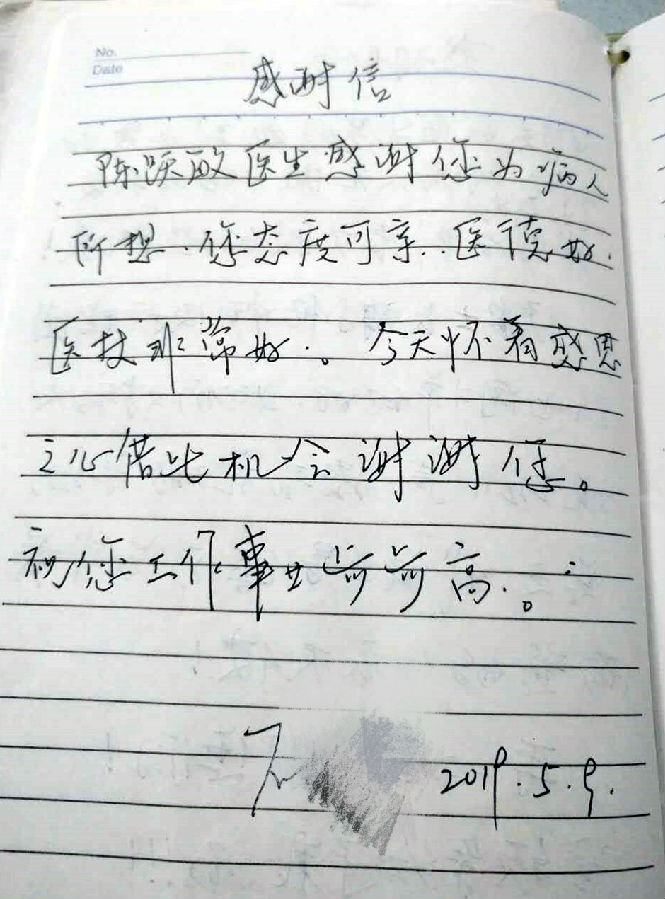 No.
Date
感谢信
陈跃敏医生感谢您为病人
所想.您态度可亲..医德好.
医技非常好.。今天怀着感恩
之心借此机会谢谢您。
祝您工作事业节节高.。
2019.5.9.